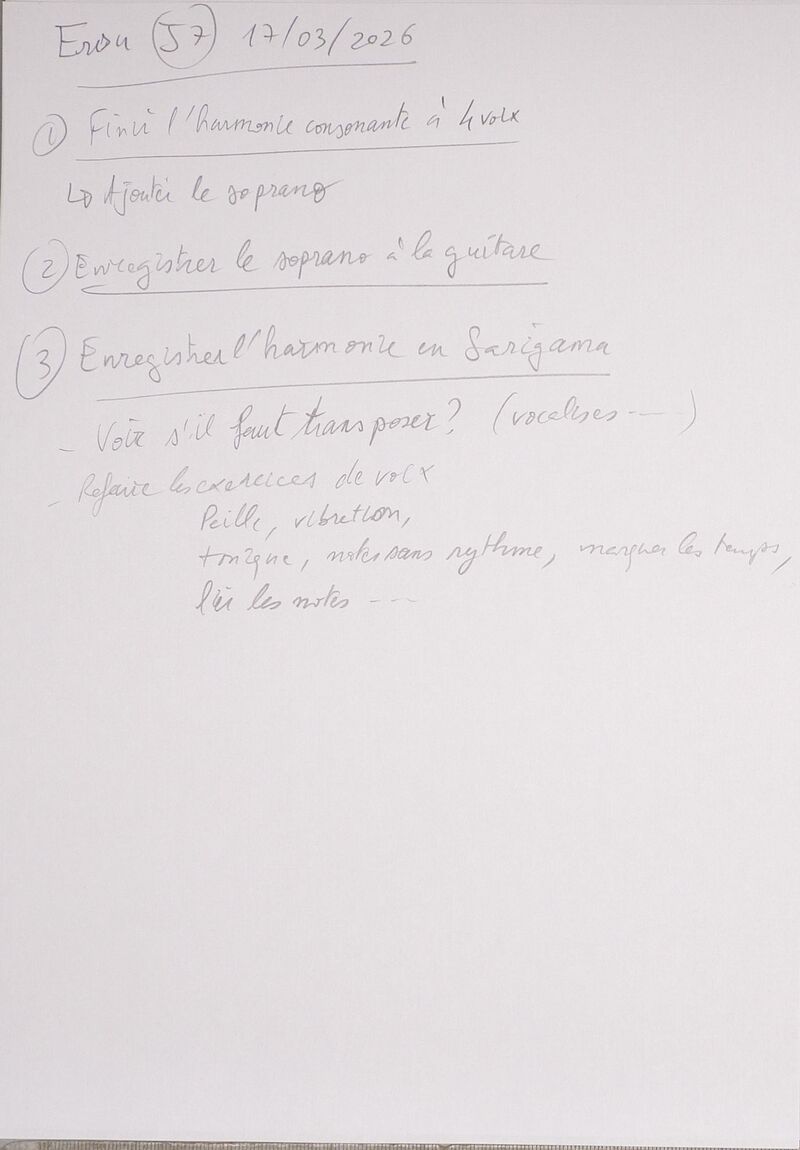 Ersu J7 17/03/2026
① Finir l'harmonie consonante à 4 voix
↳ Ajouter le soprano
② Enregistrer le soprano à la guitare
③ Enregistrer l'harmonie en Sarigama
- Voir s'il faut transposer? (vocalises ----)
- Refaire les exercices de voix
Paille, vibration,
tonique, notes sans rythme, marquer les temps,
lier les notes ---